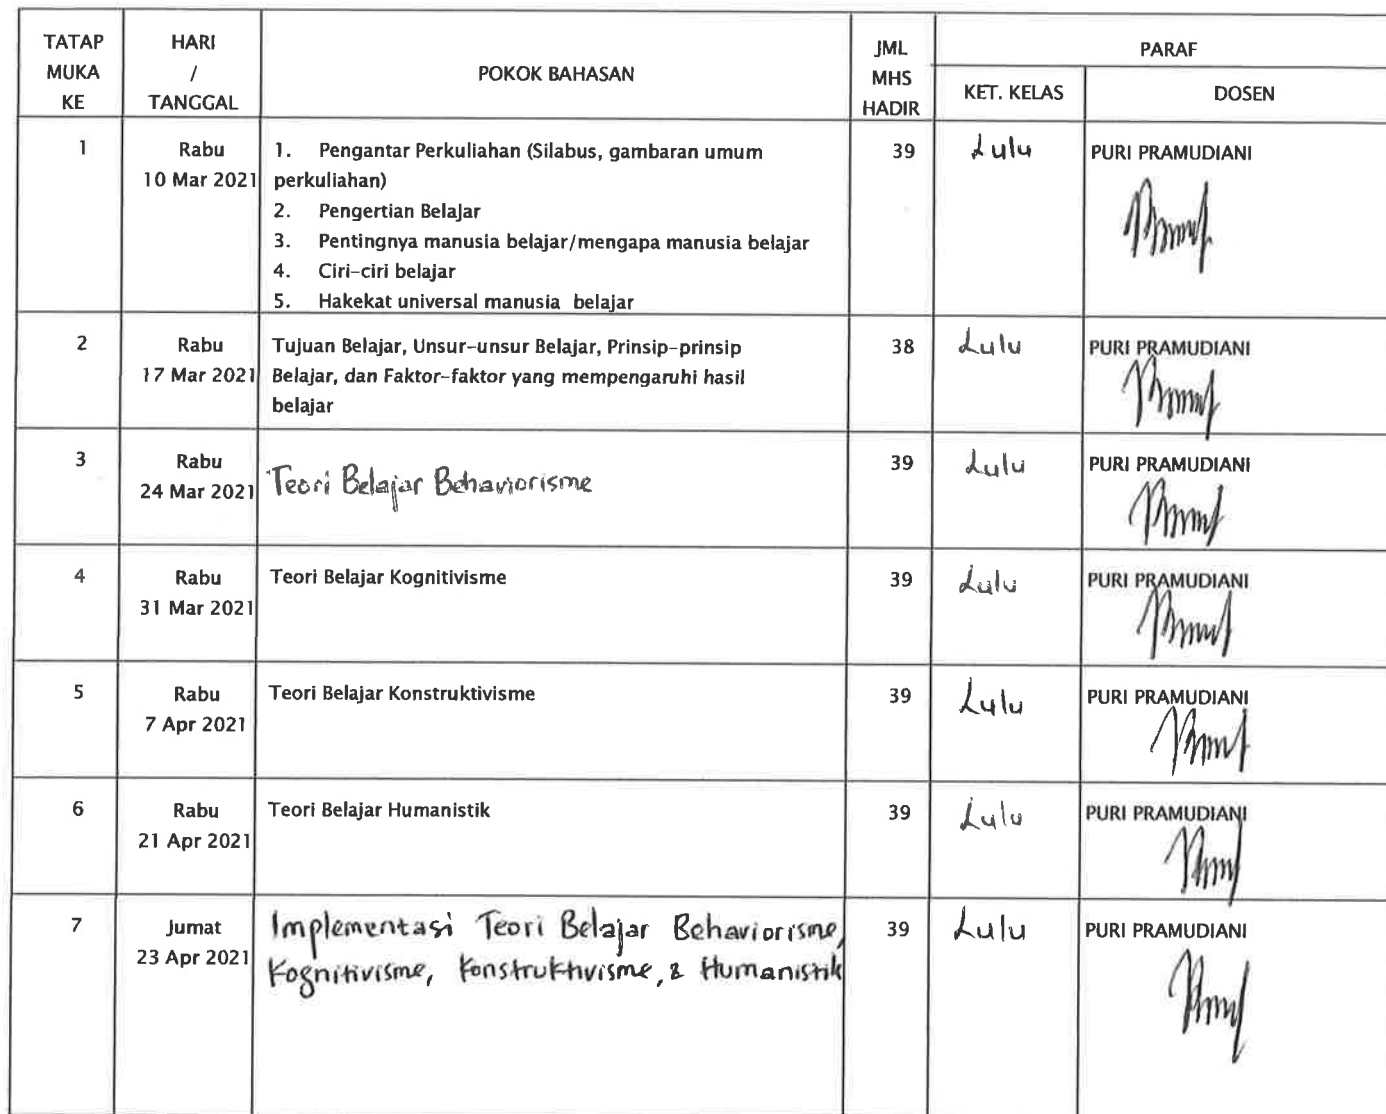 TATAP MUKA KE
HARI / TANGGAL
POKOK BAHASAN
JML MHS HADIR
PARAF
KET. KELAS
DOSEN
1
Rabu
10 Mar 2021
1. Pengantar Perkuliahan (Silabus, gambaran umum
perkuliahan)
2. Pengertian Belajar
3. Pentingnya manusia belajar/mengapa manusia belajar
4. Ciri-ciri belajar
5. Hakekat universal manusia belajar
39
Lulu
PURI PRAMUDIANI
2
Rabu
17 Mar 2021
Tujuan Belajar, Unsur-unsur Belajar, Prinsip-prinsip
Belajar, dan Faktor-faktor yang mempengaruhi hasil
belajar
38
Lulu
PURI PRAMUDIANI
3
Rabu
24 Mar 2021
Teori Belajar Behaviorisme
39
Lulu
PURI PRAMUDIANI
4
Rabu
31 Mar 2021
Teori Belajar Kognitivisme
39
Lulu
PURI PRAMUDIANI
5
Rabu
7 Apr 2021
Teori Belajar Konstruktivisme
39
Lulu
PURI PRAMUDIANI
6
Rabu
21 Apr 2021
Teori Belajar Humanistik
39
Lulu
PURI PRAMUDIANI
7
Jumat
23 Apr 2021
Implementasi Teori Belajar Behaviorisme,
Kognitivisme, Konstruktivisme, & Humanistik
39
Lulu
PURI PRAMUDIANI